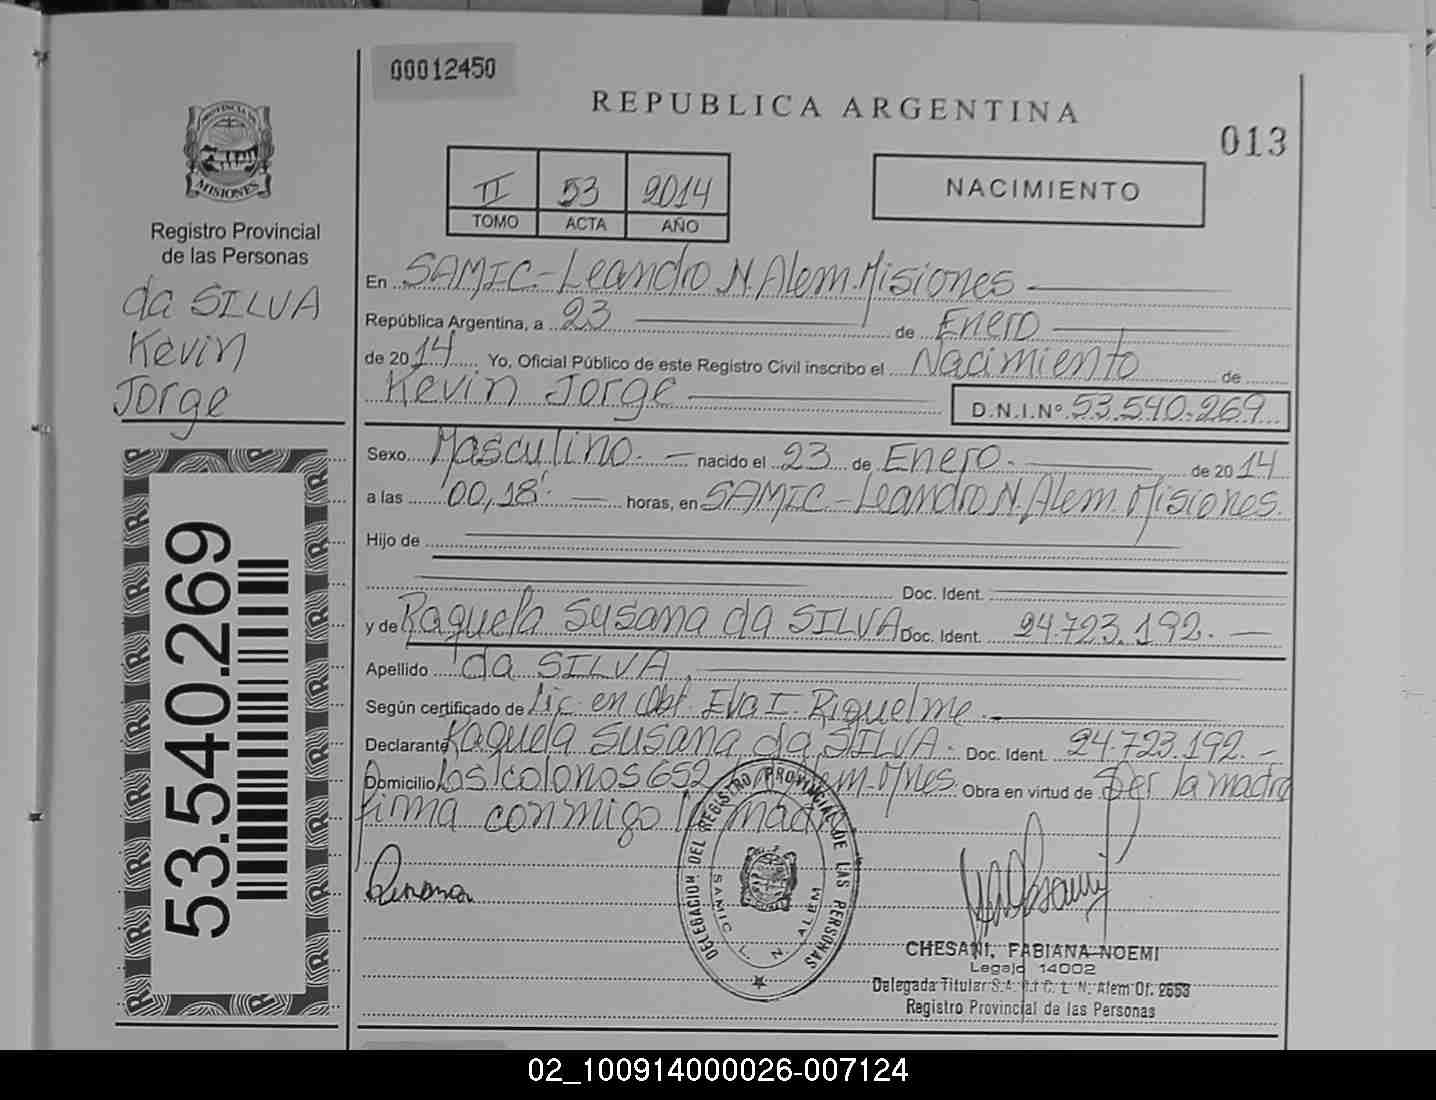 00012450
REPUBLICA ARGENTINA
013
PROVINCIA DE
MISIONES
Registro Provincial
de las Personas
da SILVA
Kevin
Jorge
53.540.269
II 53 2014
TOMO ACTA AÑO
NACIMIENTO
En SAMIC - Leandro N. Alem. Misiones
República Argentina, a 23 de Enero
de 2014 Yo, Oficial Público de este Registro Civil inscribo el Nacimiento de
Kevin Jorge D.N.I.Nº 53.540.269
Sexo Masculino. nacido el 23 de Enero. de 2014
a las 00,18. horas, en SAMIC - Leandro N. Alem. Misiones.
Hijo de
Doc. Ident.
y de Raquela Susana da SILVA Doc. Ident. 24.723.192.
Apellido da SILVA
Según certificado de Lic. en Obt. Eva I. Riquelme.
Declarante Raquela Susana da SILVA. Doc. Ident. 24.723.192.
Domicilio Los colonos 652 Alem. Mnes. Obra en virtud de Ser la madre
firma conmigo la madre
DELEGACION DEL REGISTRO PROVINCIAL DE LAS PERSONAS
SAMIC L. N. ALEM
CHESANI, FABIANA NOEMI
Legajo 14002
Delegada Titular S.A.M.I.C. L. N. Alem Of. 2653
Registro Provincial de las Personas
02_100914000026-007124